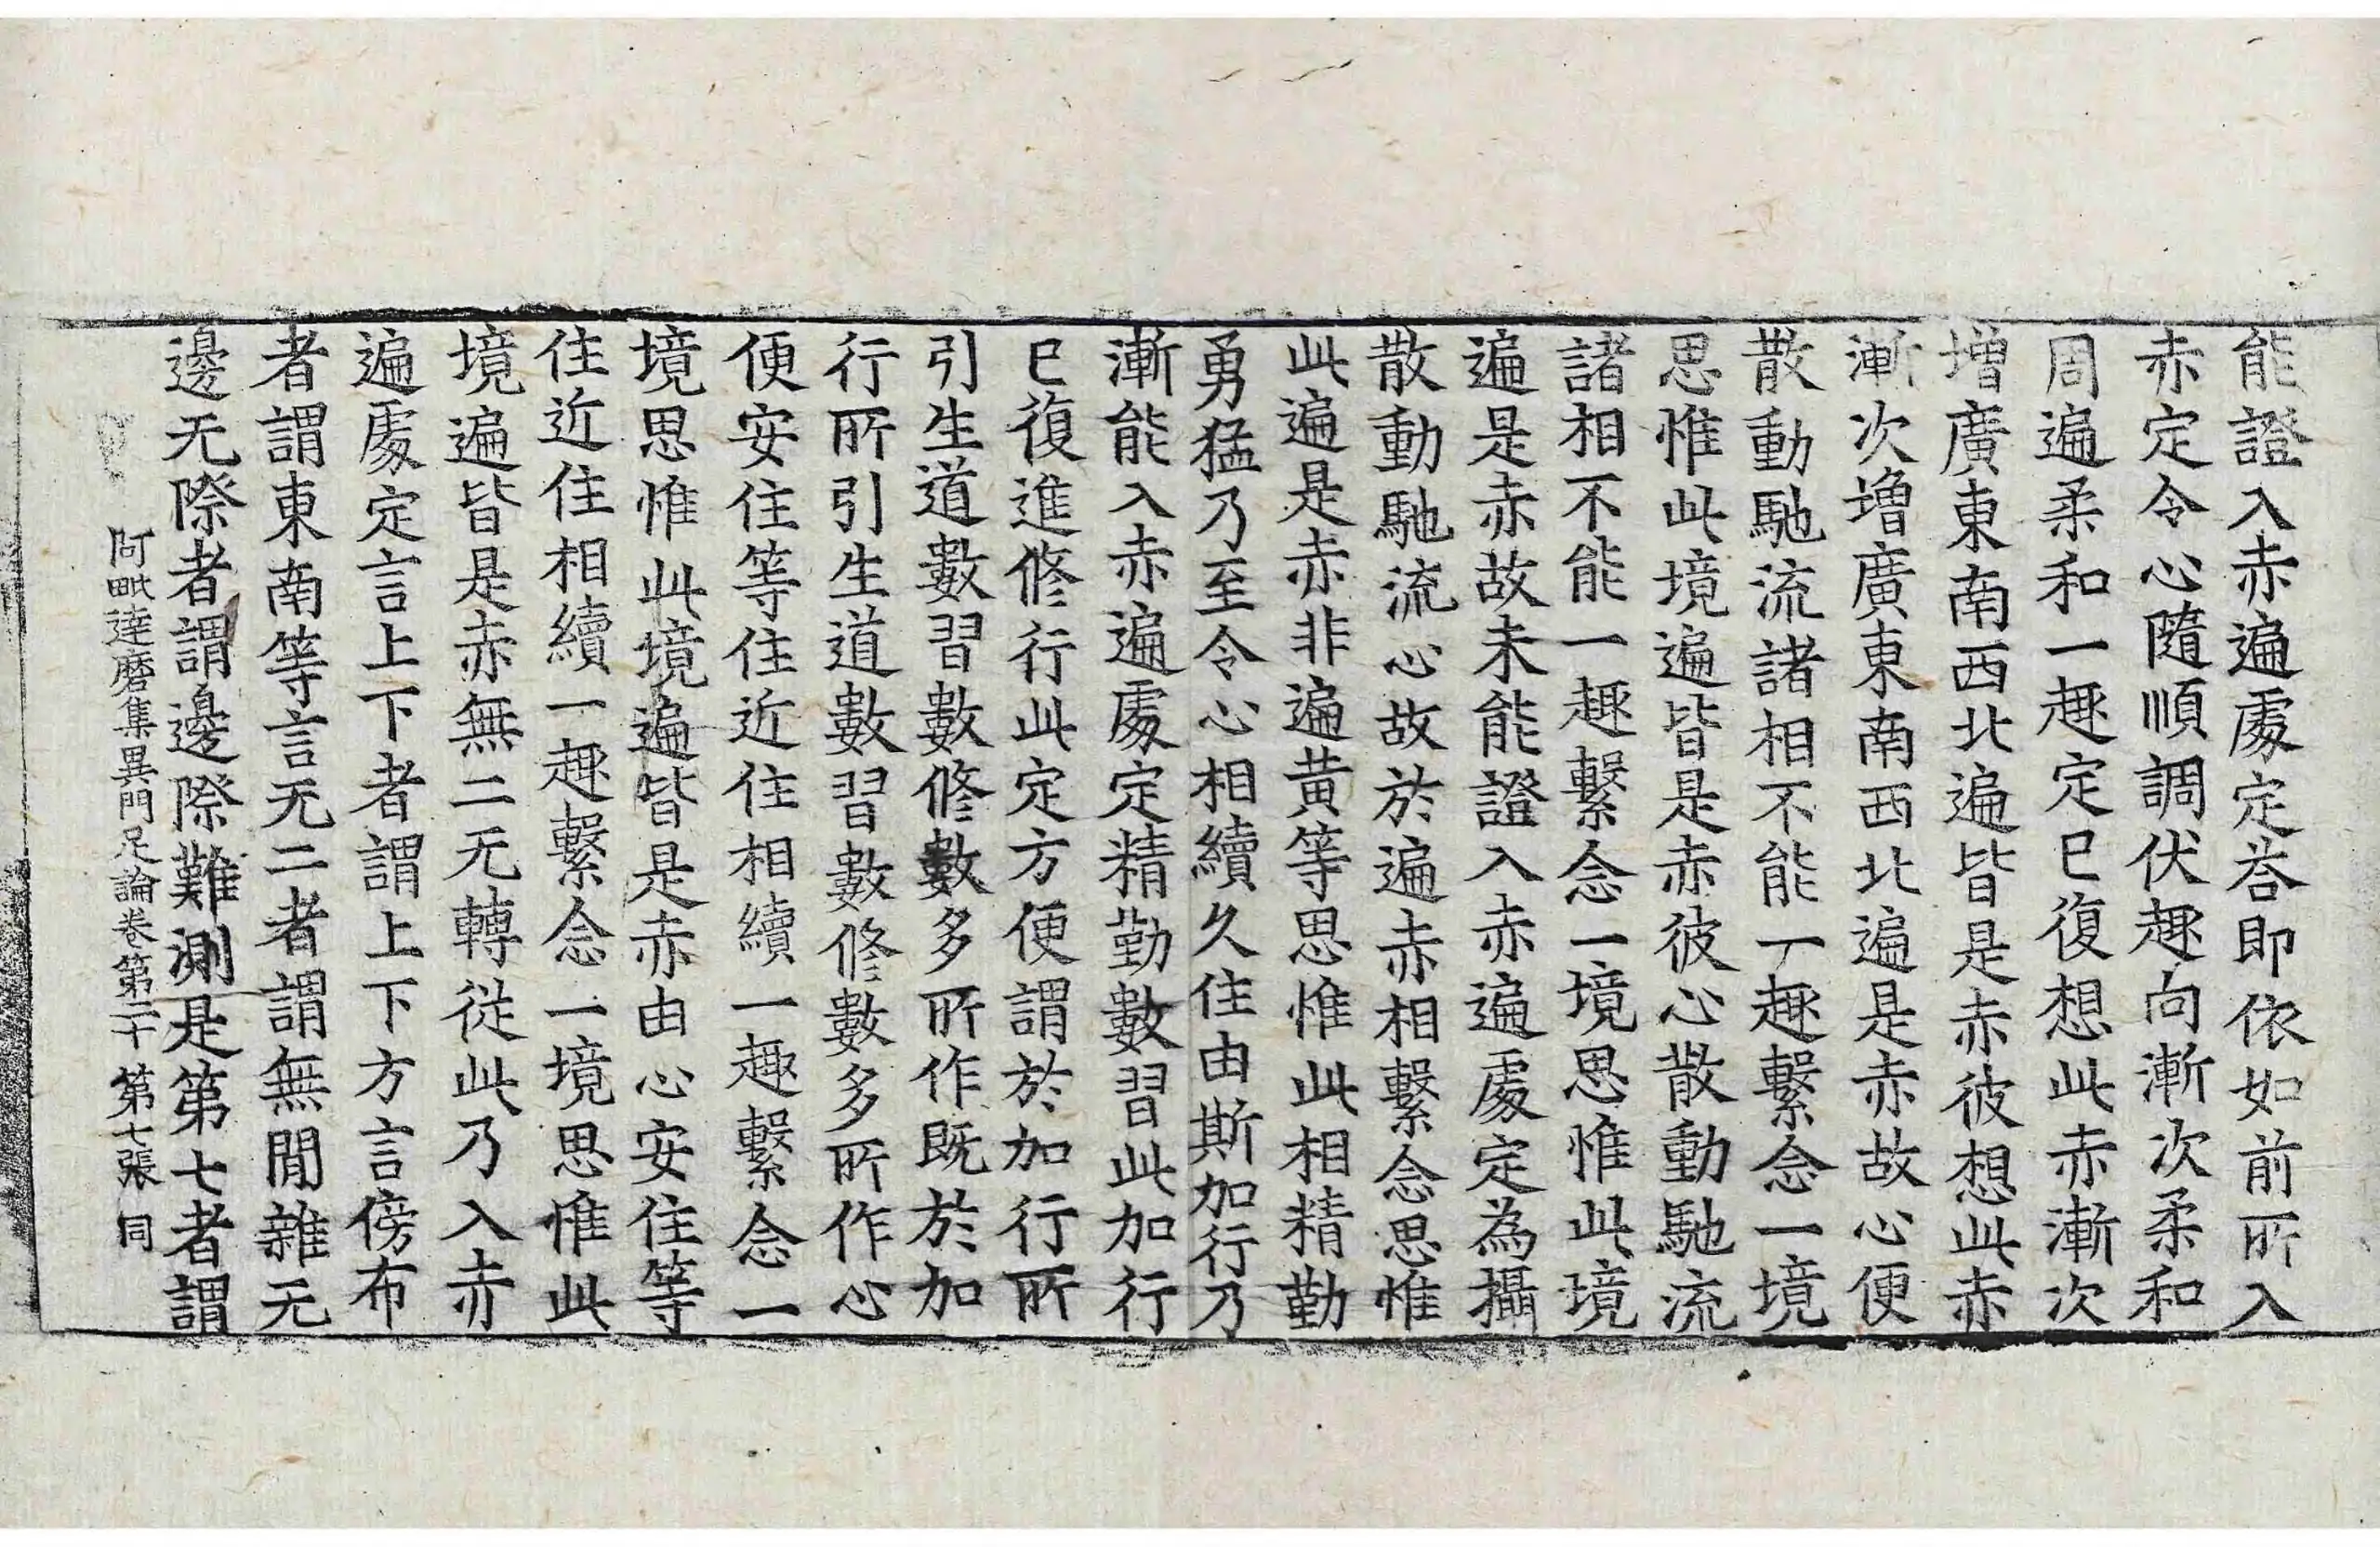 能證入赤遍處定荅即依如前所入
赤定令心隨順調伏趣向漸次柔和
周遍柔和一趣定已復想此赤漸次
增廣東南西北遍皆是赤彼想此赤
漸次增廣東南西北遍是赤故心便
散動馳流諸相不能一趣繫念一境
思惟此境遍皆是赤彼心散動馳流
諸相不能一趣繫念一境思惟此境
遍是赤故未能證入赤遍處定為攝
散動馳流心故於遍赤相繫念思惟
此遍是赤非遍黄等思惟此相精勤
勇猛乃至令心相續久住由斯加行乃
漸能入赤遍處定精勤數習此加行
已復進修行此定方便謂於加行所
引生道數習數修數多所作既於加
行所引生道數習數修數多所作心
便安住等住近住相續一趣繫念一
境思惟此境遍皆是赤由心安住等
住近住相續一趣繫念一境思惟此
境遍皆是赤無二无轉從此乃入赤
遍處定言上下者謂上下方言傍布
者謂東南等言无二者謂無閒雜无
邊无際者謂邊際難測是第七者謂
阿毗達磨集異門足論卷第二十 第七張 同